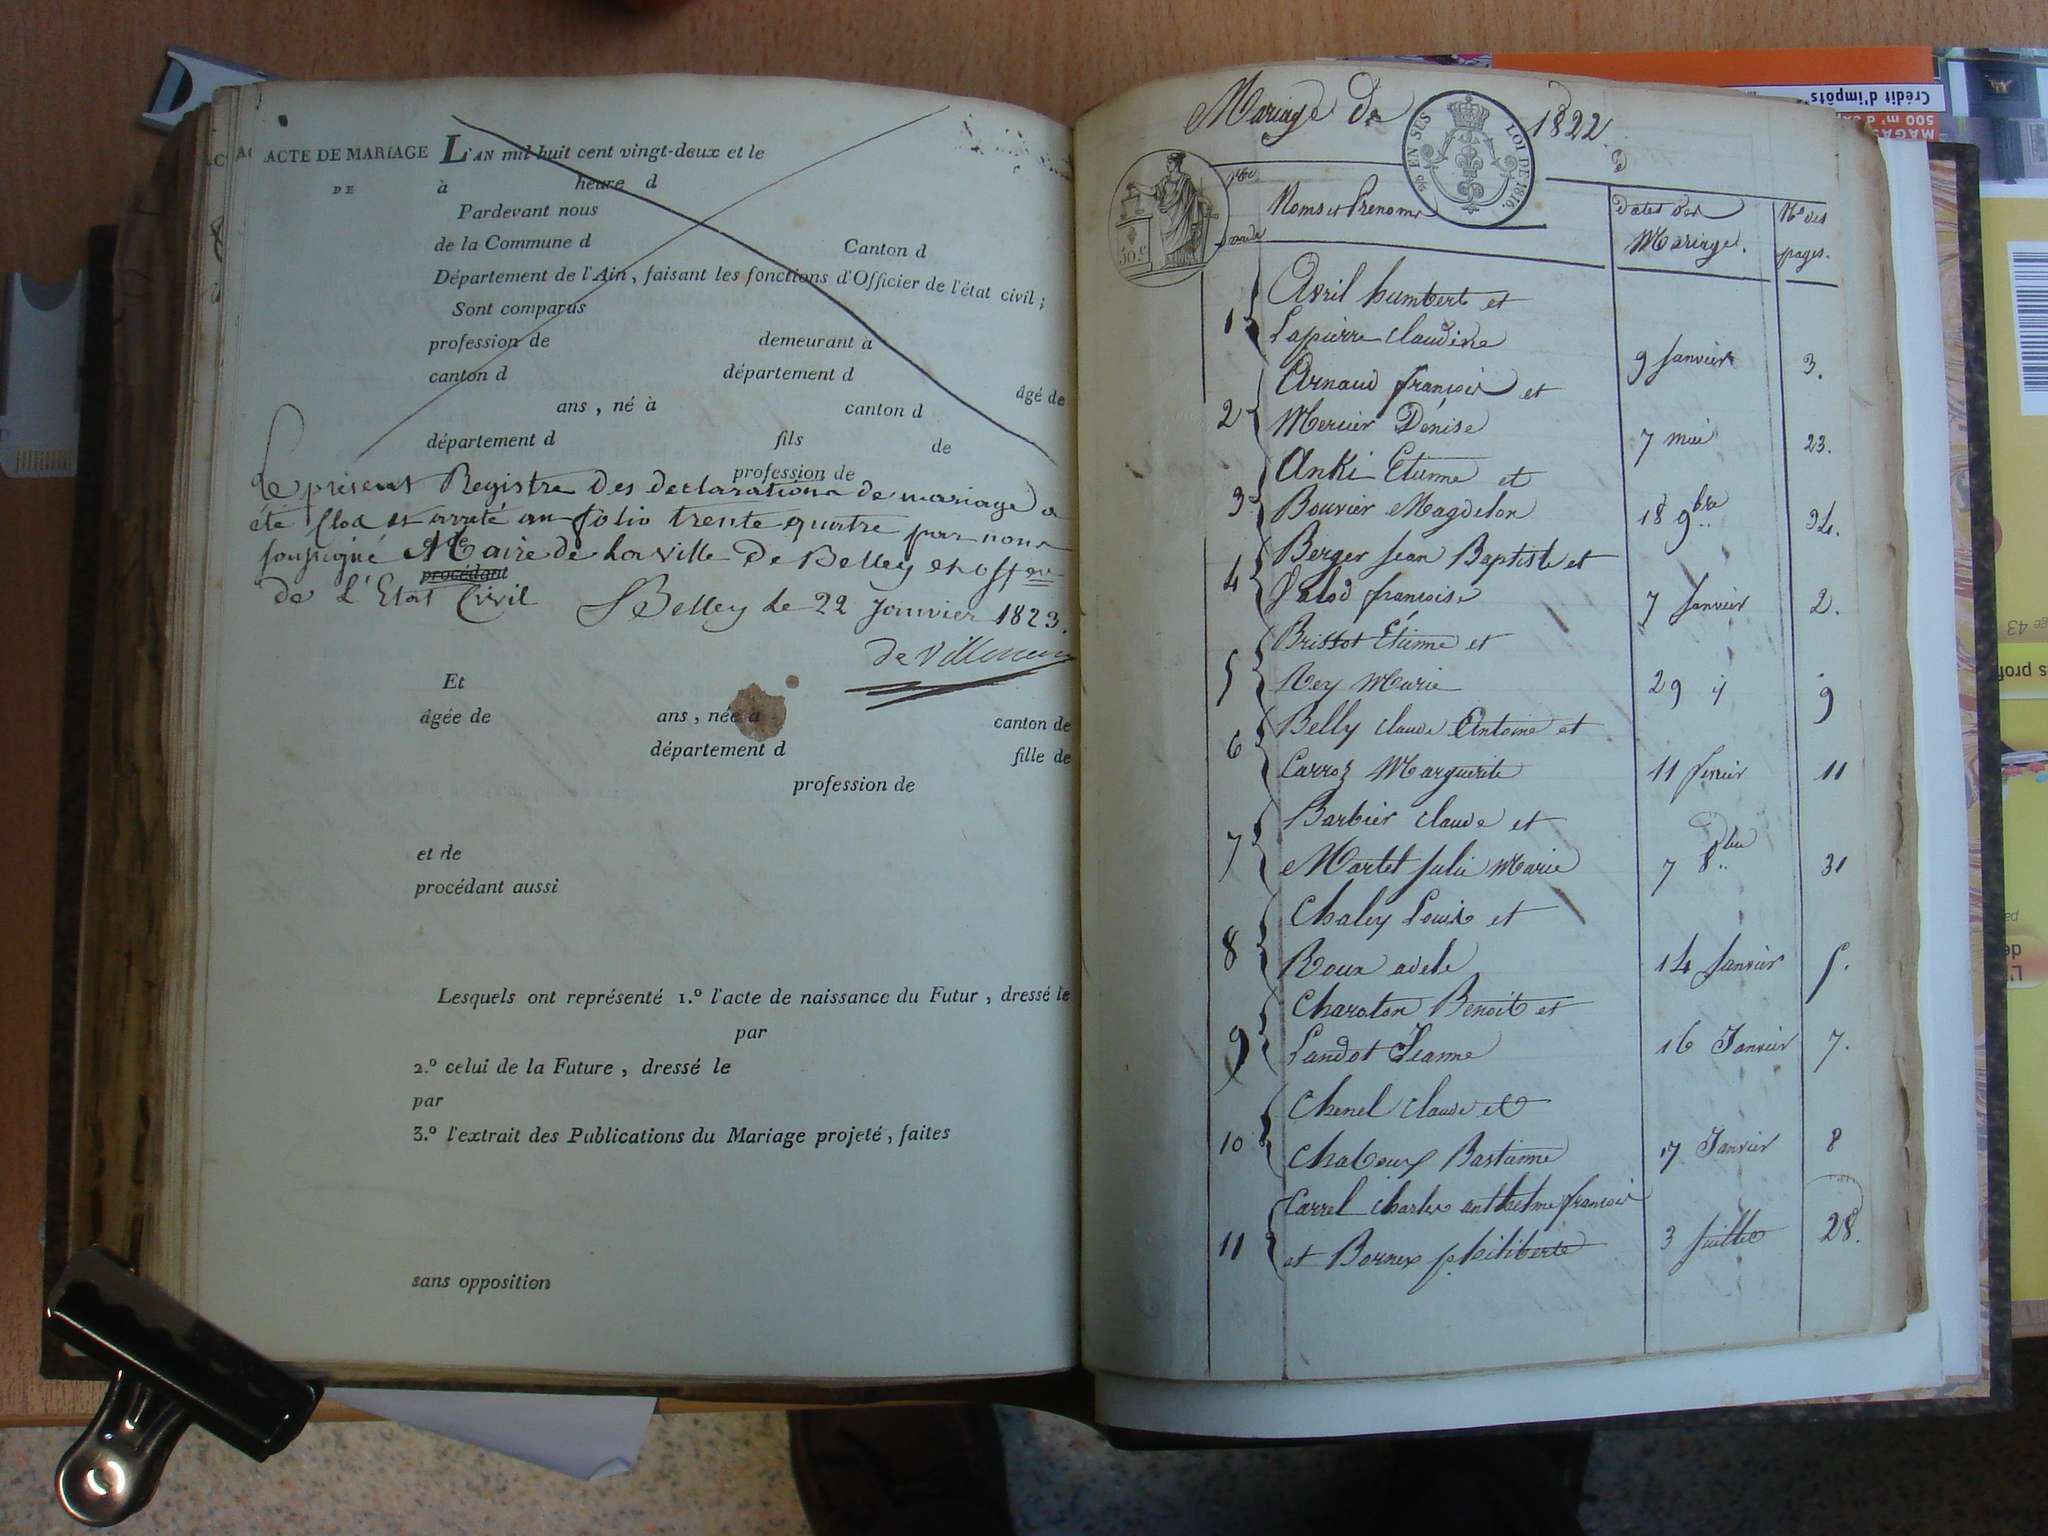 ACTE DE MARIAGE
DE
L'AN mil huit cent vingt-deux et le
à heure d
Pardevant nous
de la Commune d Canton d
Département de l'Ain, faisant les fonctions d'Officier de l'état civil ;
Sont comparus
profession de demeurant à
canton d département d âgé de
ans, né à canton d
département d fils de
profession de
Le présent Registre des declarations de mariage a
été Clos et arreté au folio trente quatre par nous
soussigné Maire de la ville De Belley et off
procédant
De L'Etat Civil Belley le 22 Janvier 1823.
Et
âgée de ans, née à canton de
département d fille de
profession de
et de
procédant aussi
Lesquels ont représenté 1.º l'acte de naissance du Futur, dressé le
par
2.º celui de la Future, dressé le
par
3.º l'extrait des Publications du Mariage projeté, faites
sans opposition
Mariage De 1822.
EN SUS LOI DE 1816.
50 c
Noms et Prenoms Dates des Mariage. Nos des pages.
1 Avril humbert et
Lapierre claudine 9 Janvier 3.
2 Arnaud françois et
Mercier Denise 7 mai 23.
3 Anki Etienne et
Bouvier Magdelon 18 9bre 34.
4 Berger Jean Baptiste et
françoise 7 Janvier 2.
5 Brissot Etienne et
Rey Marie 29 9
6 Belly claude Antoine et
Carroz Marguerite 11 fevrier 11
7 Barbier claude et
Martet Julie Marie 7 8bre 31
8 Chaley Louis et
Roux adele 14 Janvier 5.
9 Charoton Benoit et
Landot Jeanne 16 Janvier 7.
10 Chenel claude et
Chaboux Bastienne 17 Janvier 8
11 Carrel charles anthelme françois
et Bornex philiberte 3 Juillet 28.
MAGAS
500 m² d'exp
Crédit d'impôts